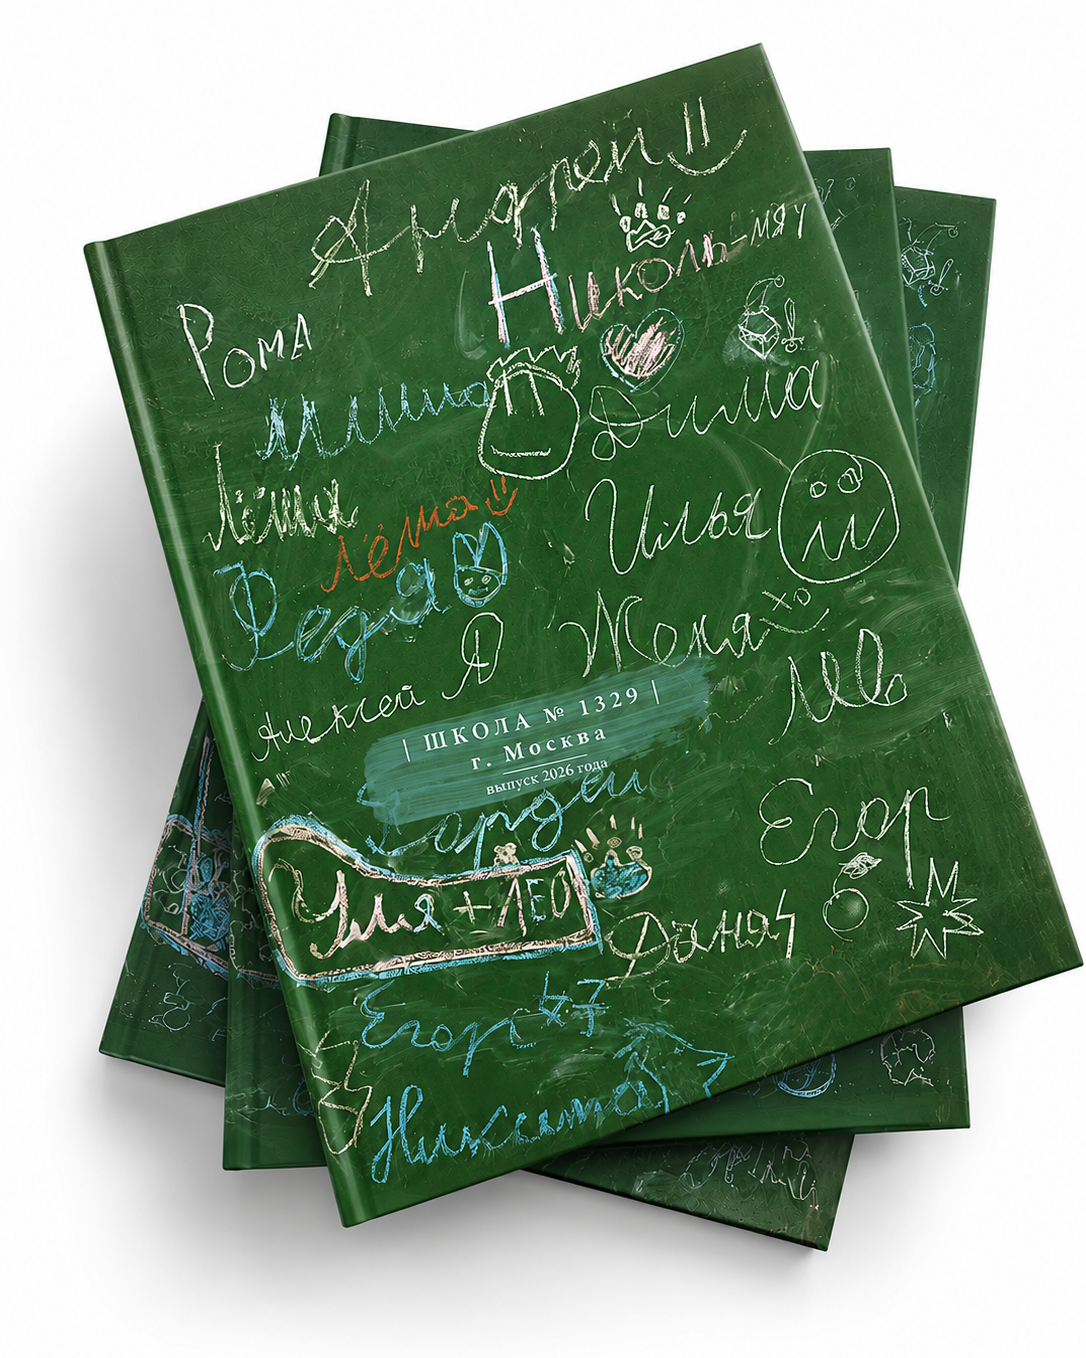 Андрей
Николь-мяу
Рома
Миша
Дима
Лёша
Лёша
Илья
Федя
Женя
Я
Алексей
Лев
| ШКОЛА № 1329 |
г. Москва
выпуск 2026 года
Гордей
Егор М
Уля + ЛЕО
Даня
Егор 47
Никита